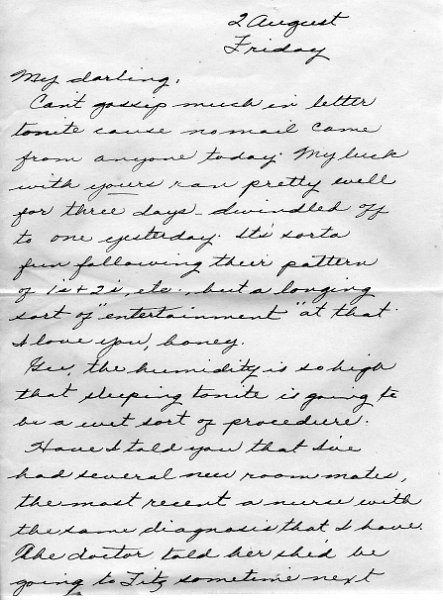 2 August
Friday
My darling,
Can't gossip much in letter
tonite cause no mail came
from anyone today. My luck
with yours ran pretty well
for three days - dwindled off
to one yesterday. It's sorta
fun following their pattern
of 1's + 2's, etc., but a longing
sort of "entertainment" at that.
I love you, honey.
Gee, the humidity is so high
that sleeping tonite is going to
be a wet sort of procedure.
Have I told you that I've
had several new room mates,
the most recent a nurse with
the same diagnosis that I have.
The doctor told her she'd be
going to Fitz sometime next